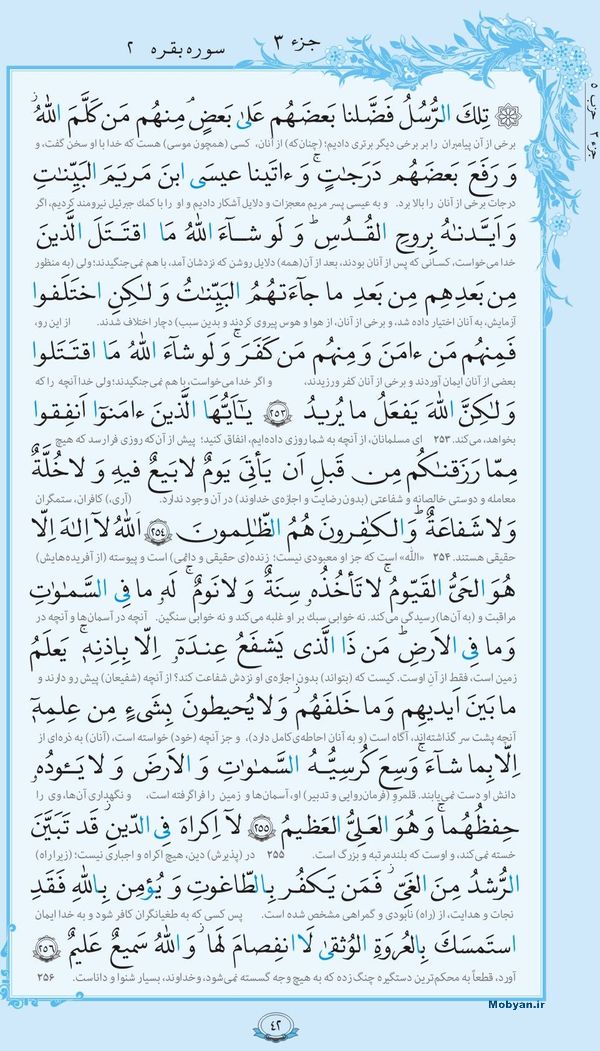 جزء ۳
سوره بقره ۲
جزء ۳ حزب ۵
تِلكَ الرُّسُلُ فَضَّلنا بَعضَهُم عَلىٰ بَعضٍ ۘ مِنهُم مَن كَلَّمَ اللّٰهُ ۖ
برخی از آن پیامبران را بر برخی دیگر برتری دادیم؛ (چنان‌که) از آنان، کسی (همچون موسی) هست که خدا با او سخن گفت، و
وَ رَفَعَ بَعضَهُم دَرَجاتٍ ۚ وَ ءاتَينا عيسَى ابنَ مَريَمَ البَيِّنٰتِ
درجات برخی از آنان را بالا برد. و به عیسی پسر مریم معجزات و دلایل آشکار دادیم و او را با کمک جبرئیل نیرومند کردیم، اگر
وَ اَيَّدنٰهُ بِروحِ القُدُسِ ۗ وَ لَو شاۤءَ اللّٰهُ مَا اقتَتَلَ الَّذينَ
خدا می‌خواست، کسانی که پس از آنان بودند، بعد از آن (همه) دلایل روشن که نزدشان آمد، با هم نمی‌جنگیدند؛ ولی (به منظور
مِن بَعدِهِم مِن بَعدِ ما جاۤءَتهُمُ البَيِّنٰتُ وَ لٰكِنِ اختَلَفوا
آزمایش، به آنان اختیار داده شد، و برخی از آنان، از هوا و هوس پیروی کردند و بدین سبب) دچار اختلاف شدند. از این رو،
فَمِنهُم مَن ءامَنَ وَ مِنهُم مَن كَفَرَ ۚ وَ لَو شاۤءَ اللّٰهُ مَا اقتَتَلوا
بعضی از آنان ایمان آوردند و برخی از آنان کفر ورزیدند، و اگر خدا می‌خواست، با هم نمی‌جنگیدند؛ ولی خدا آنچه را که
وَ لٰكِنَّ اللّٰهَ يَفعَلُ ما يُريدُ ﴿۲۵۳﴾ يٰۤاَيُّهَا الَّذينَ ءامَنوۤا اَنفِقوا
بخواهد، می‌کند. ۲۵۳ ای مسلمانان، از آنچه به شما روزی داده‌ایم، انفاق کنید؛ پیش از آن‌که روزی فرا رسد که هیچ
مِمّا رَزَقنٰكُم مِن قَبلِ اَن يَأتِيَ يَومٌ لا بَيعٌ فيهِ وَ لا خُلَّةٌ
معامله و دوستی خالصانه و شفاعتی (بدون رضایت و اجازه‌ی خداوند) در آن وجود ندارد. (آری،) کافران، ستمگران
وَ لا شَفاعَةٌ ۗ وَ الكٰفِرونَ هُمُ الظّٰلِمونَ ﴿۲۵۴﴾ اَللّٰهُ لاۤ اِلٰهَ اِلّا
حقیقی هستند. ۲۵۴ «اللّه» است که جز او معبودی نیست؛ زنده‌ی (حقیقی و دائمی) است و پیوسته (از آفریده‌هایش)
هُوَ الحَيُّ القَيّومُ ۚ لا تَأخُذُهۥ سِنَةٌ وَ لا نَومٌ ۚ لَهۥ ما فِى السَّمٰوٰتِ
مراقبت و (به آن‌ها) رسیدگی می‌کند. نه خوابی سبک بر او غلبه می‌کند و نه خوابی سنگین. آنچه در آسمان‌ها و آنچه در
وَ ما فِى الاَرضِ ۗ مَن ذَا الَّذى يَشفَعُ عِندَهۥۤ اِلّا بِاِذنِهٖ ۚ يَعلَمُ
زمین است، فقط از آنِ اوست. کیست که (بتواند) بدون اجازه‌ی او نزدش شفاعت کند؟ از آنچه (شفیعان) پیش رو دارند و
ما بَينَ اَيديهِم وَ ما خَلفَهُم ۖ وَ لا يُحيطونَ بِشَىءٍ مِن عِلمِهٖۤ
آنچه پشت سر گذاشته‌اند، آگاه است (و به آنان احاطه‌ی کامل دارد)، و جز آنچه (خود) خواسته است، (آنان) به ذره‌ای از
اِلّا بِما شاۤءَ ۚ وَسِعَ كُرسِيُّهُ السَّمٰوٰتِ وَ الاَرضَ ۖ وَ لا يَـٔودُهۥ
دانش او دست نمی‌یابند. قلمرو (فرمان‌روایی و تدبیر) او، آسمان‌ها و زمین را فراگرفته است، و نگهداری آن‌ها، وی را
حِفظُهُما ۚ وَ هُوَ العَلِىُّ العَظيمُ ﴿۲۵۵﴾ لاۤ اِكراهَ فِى الدّينِ ۖ قَد تَبَيَّنَ
خسته نمی‌کند، و اوست که بلندمرتبه و بزرگ است. ۲۵۵ در (پذیرش) دین، هیچ اکراه و اجباری نیست؛ (زیرا راه)
الرُّشدُ مِنَ الغَىِّ ۚ فَمَن يَكفُر بِالطّاغوتِ وَ يُؤمِن بِاللّٰهِ فَقَدِ
نجات و هدایت، از (راه) نابودی و گمراهی مشخص شده است. پس کسی که به طغیانگران کافر شود و به خدا ایمان
استَمسَكَ بِالعُروَةِ الوُثقىٰ لَا انفِصامَ لَها ۗ وَ اللّٰهُ سَميعٌ عَليمٌ ﴿۲۵۶﴾
آورد، قطعاً به محکم‌ترین دستگیره چنگ زده که به هیچ وجه گسسته نمی‌شود، و خداوند، بسیار شنوا و داناست. ۲۵۶
Mobyan.ir
۴۲